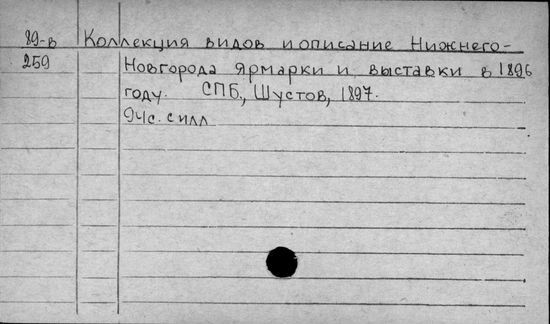 89-в Коллекция видов и описание Нижнего-
259 Новгорода ярмарки и выставки в 1896
году. СПБ., Шустов, 1897.
94с. с илл